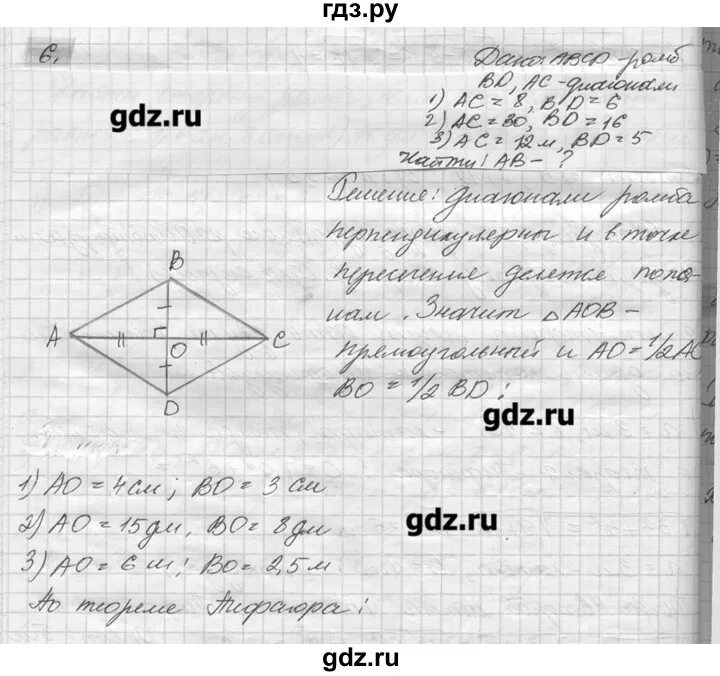 гдз.ру
6.
Дано: ABCD - ромб
BD, AC - диагонали
1) AC = 8, BD = 6
2) AC = 30, BD = 16
3) AC = 12 м, BD = 5
Найти: AB - ?
gdz.ru
Решение: диагонали ромба
перпендикулярны и в точке
пересечения делятся попо-
лам. Значит △AOB -
прямоугольный и AO = 1/2 AC
BO = 1/2 BD;
B
A
O
C
D
gdz.ru
1) AO = 4 см; BO = 3 см
2) AO = 15 дм, BO = 8 дм
gdz.ru
3) AO = 6 м; BO = 2,5 м
По теореме Пифагора:
gdz.ru